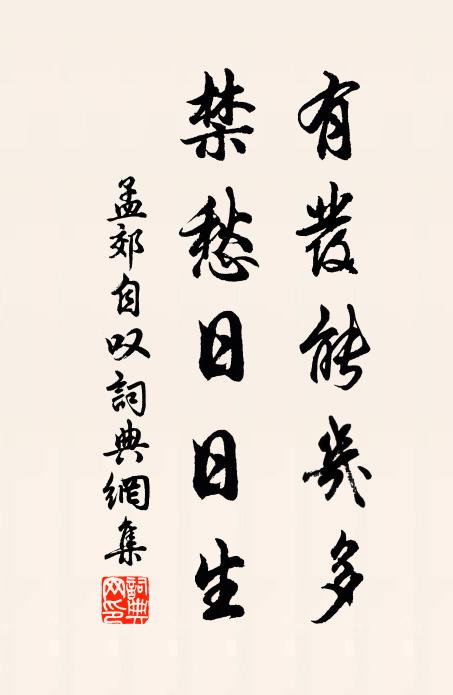 有發能幾多
禁愁日日生
孟郊自叹詞典網集
詞典網印